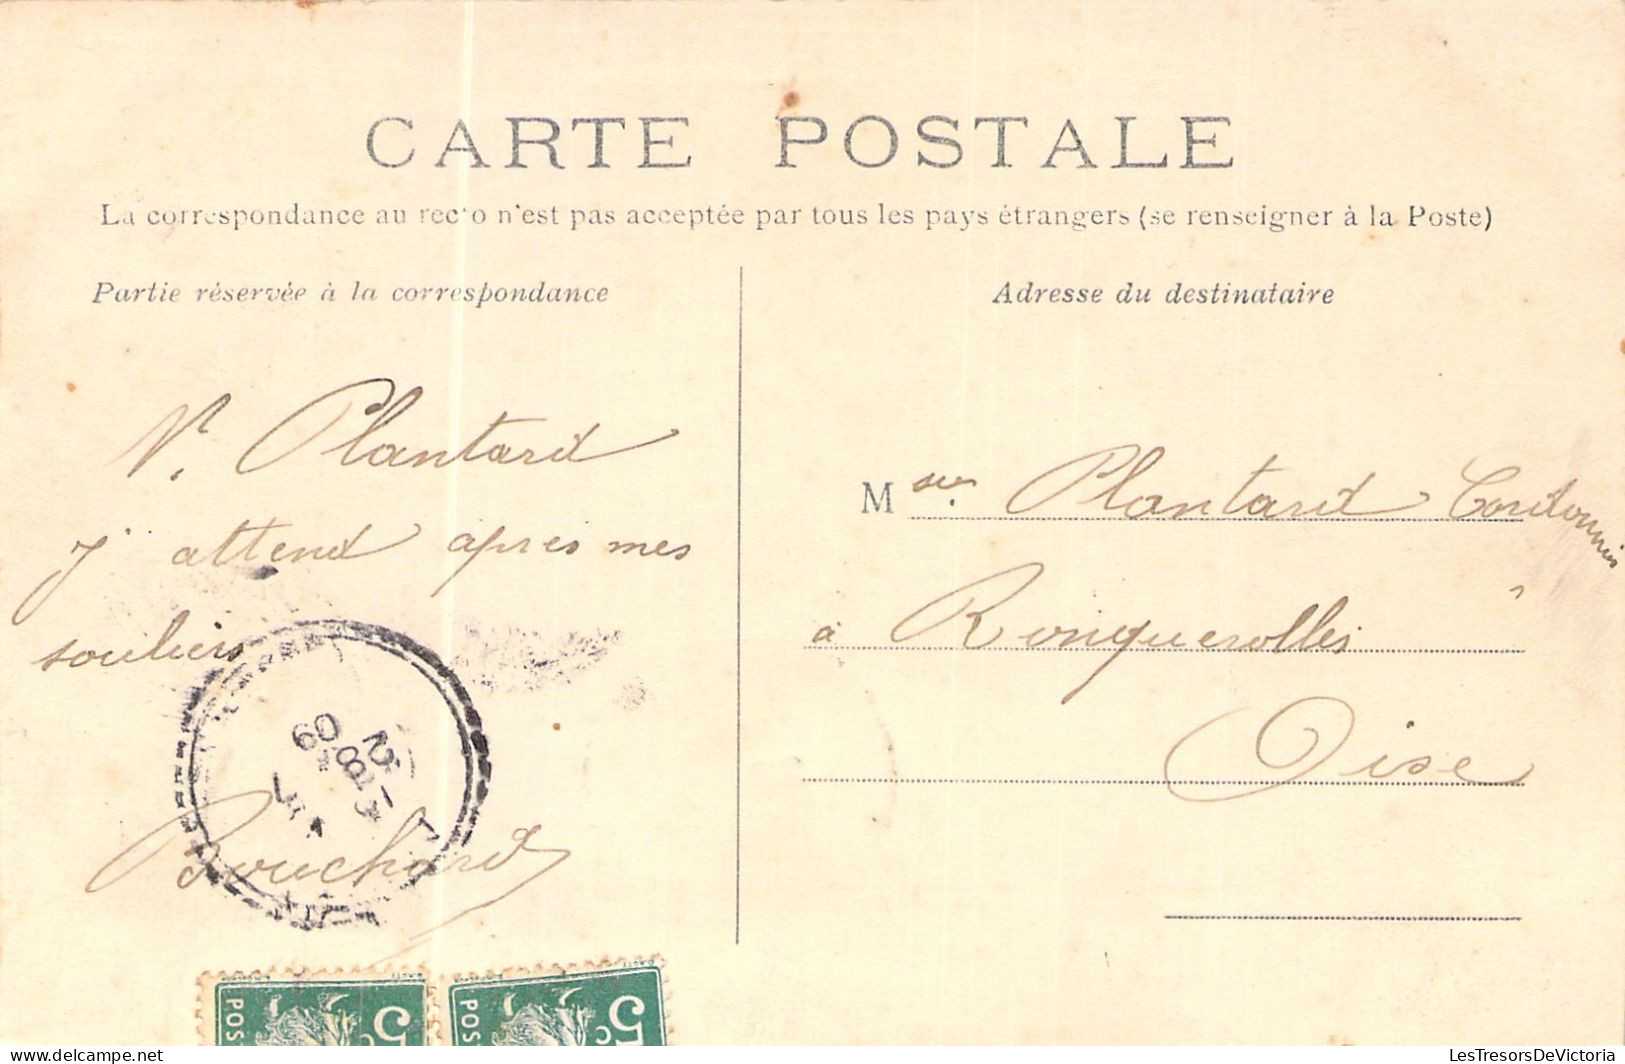 CARTE POSTALE
La correspondance au recto n'est pas acceptée par tous les pays étrangers (se renseigner à la Poste)
Partie réservée à la correspondance
V. Plantard
J attend apres mes
souliers
Bouchard
Adresse du destinataire
Msieur Plantard Cordonnier
à Ronquerolles
Oise
09
5c
POS
5c
POST
delcampe.net
LesTresorsDeVictoria